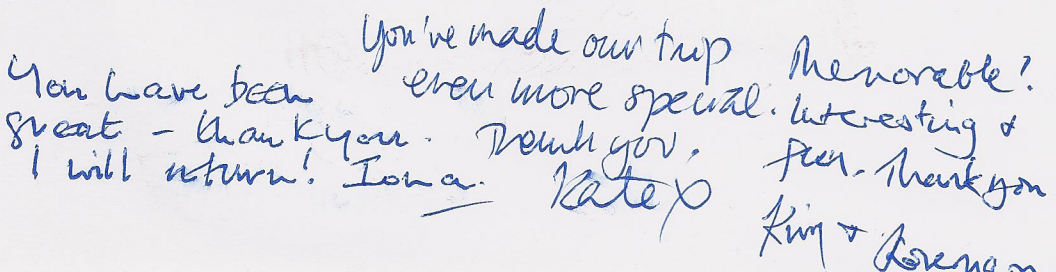 You have been
great - thank you.
I will return! Iona.
You've made our trip
even more special.
Thank you.
Kate x
Memorable!
Interesting &
fun. Thank you
Kim &